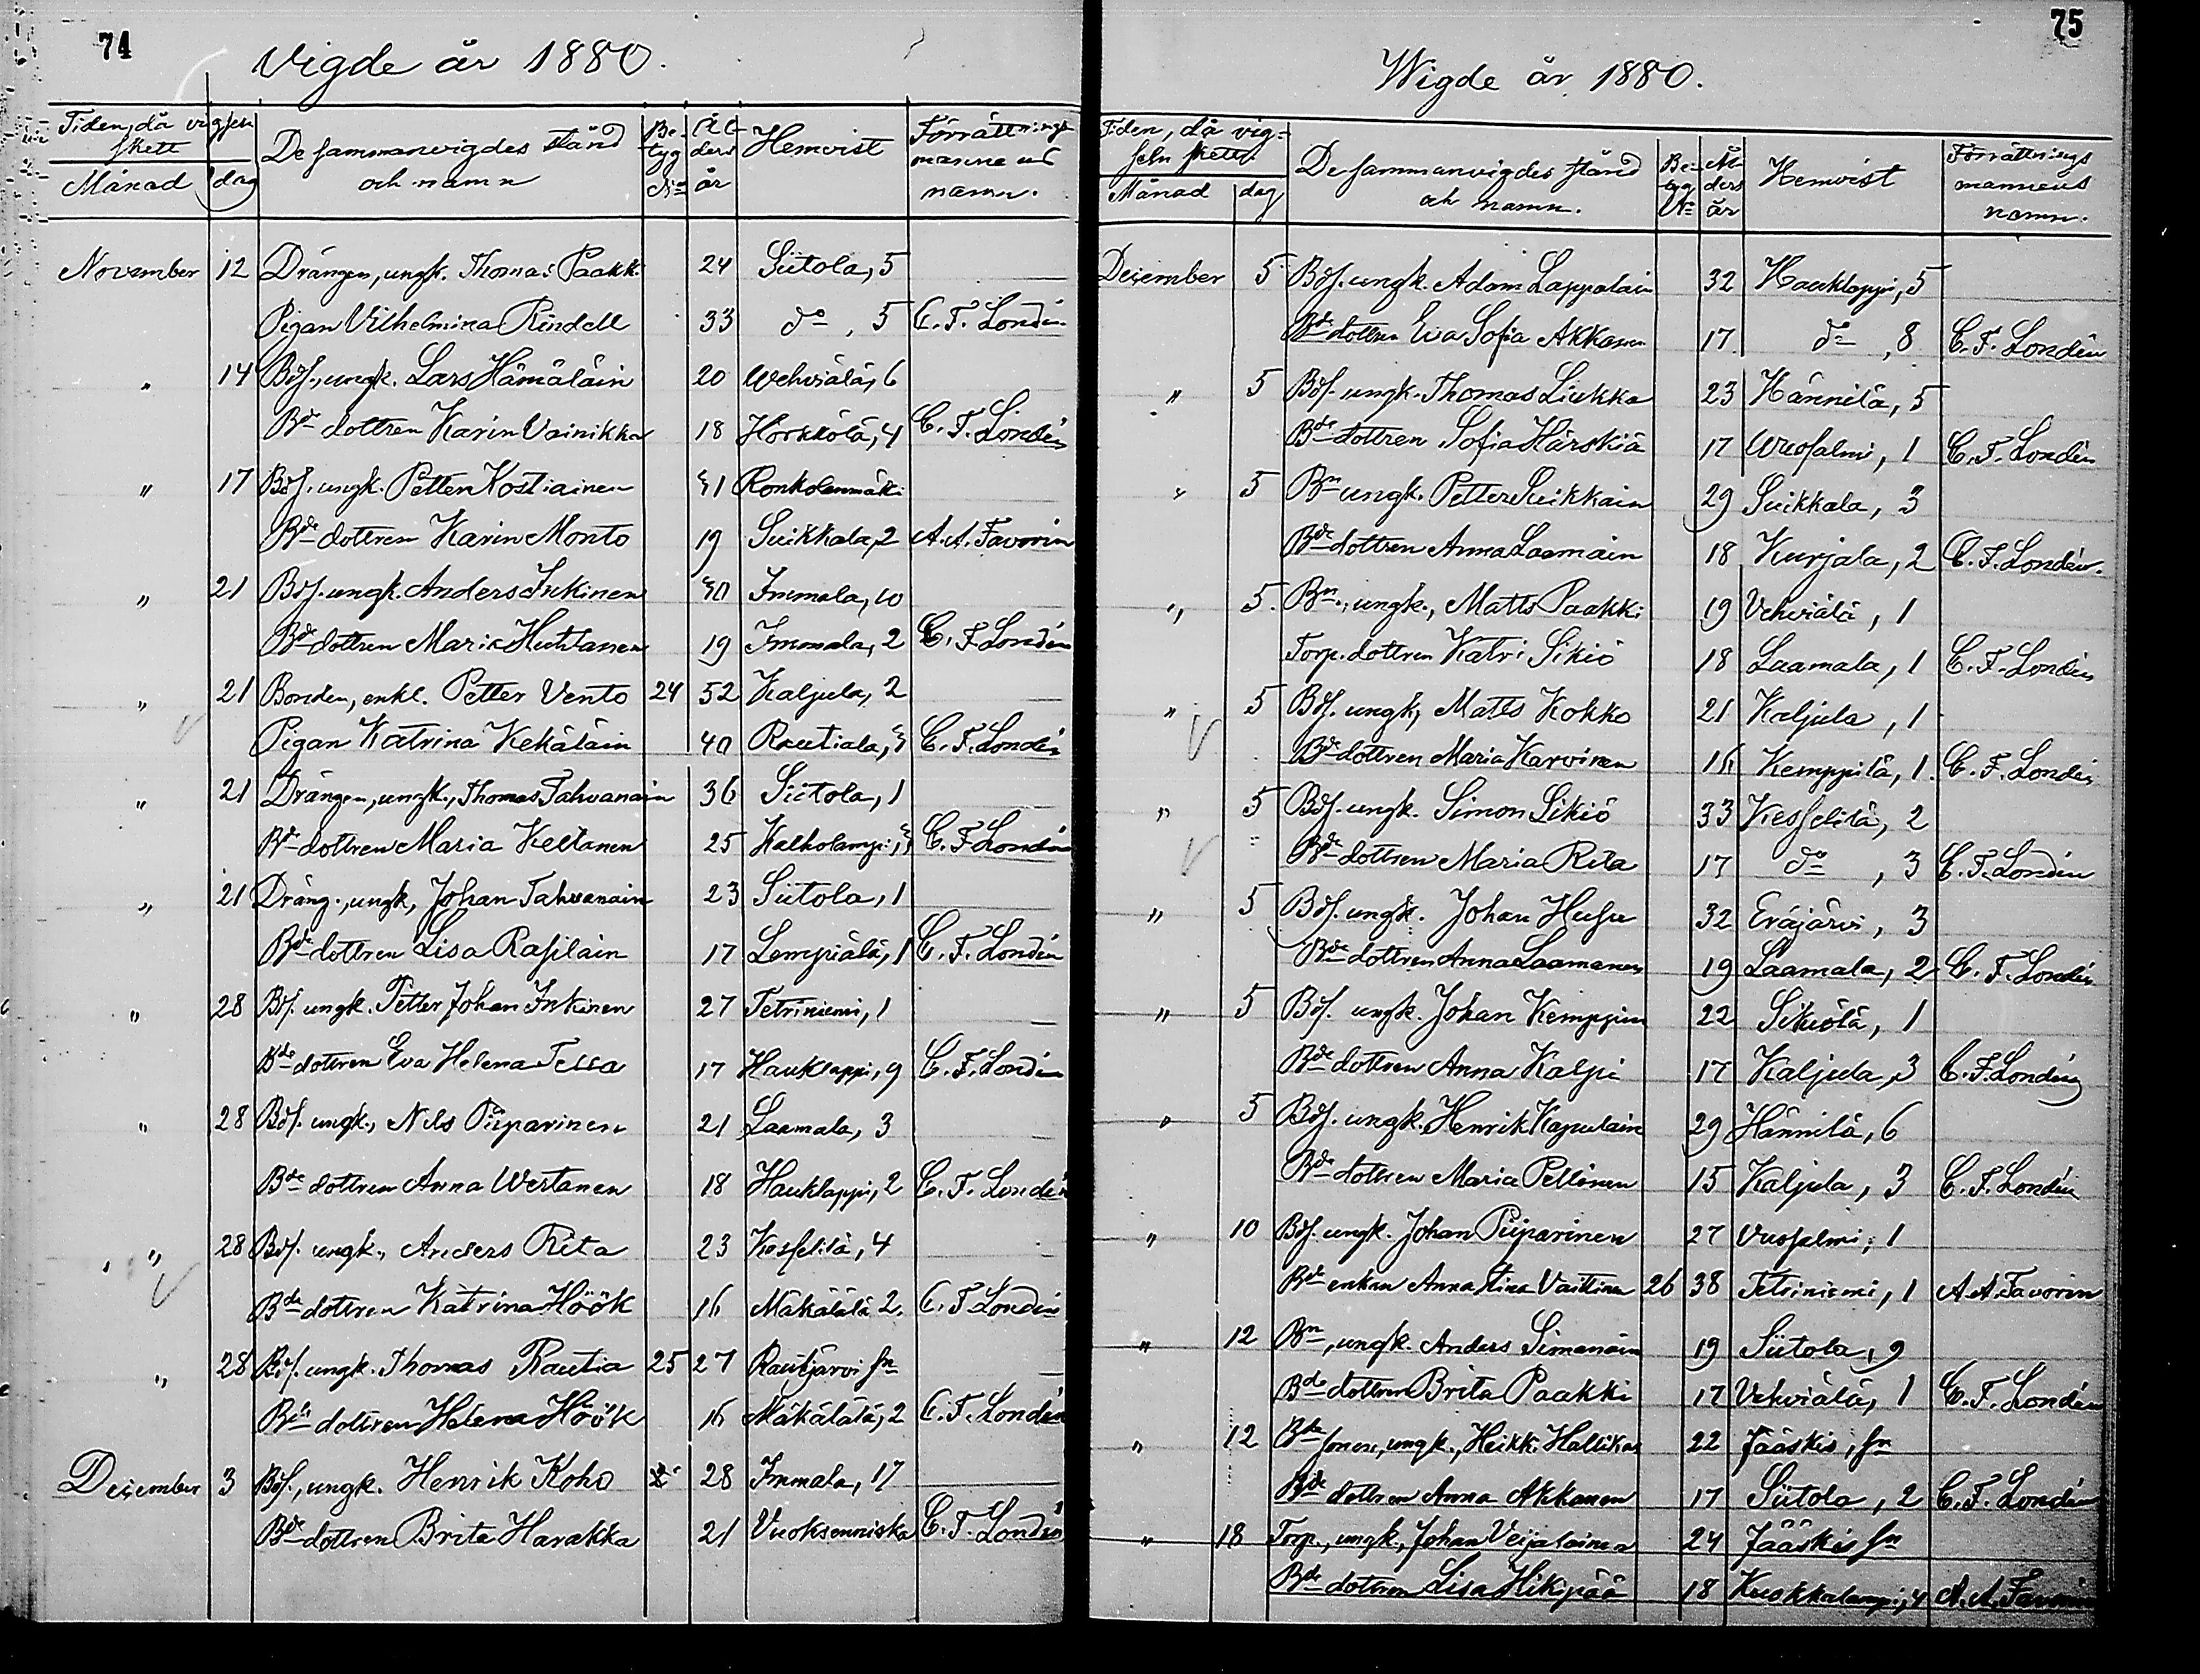 74
Vigde år 1880.
Tiden, då vigseln skett
De sammanvigdes stånd och namn
Be-tyg No
Ål-ders år
Hemvist
Förrättnings mannens namn.
Månad dag
November 12 Drängen, ungk. Thomas Paakki 24 Siitola, 5
Pigan Vilhelmina Rindell 33 do, 5 C. F. Londén
" 14 Bds., ungk. Lars Hämäläin 20 Wehviälä, 6
Bde dottren Karin Vainikka 18 Hörkkölä, 4 C. F. Londén
" 17 Bds. ungk. Petter Kostiainen 41 Ronkolenmäki
Bde dottren Karin Monto 19 Suikkala, 2 A. A. Favorin
" 21 Bds. ungk. Anders Inkinen 40 Immala, 10
Bde dottren Maria Huttanen 19 Immala, 2 C. F. Londén
" 21 Bonden, enkl. Petter Vento 24 52 Kaljula, 2
Pigan Katrina Kekäläin 40 Rautiala, C. F. Londén
" 21 Drängen, ungk., Thomas Tahvanain 36 Siitola, 1
Bde dottren Maria Keltanen 25 Kalholampi, C. F. Londén
" 21 Dräng., ungk, Johan Tahvanain 23 Siitola, 1
Bde dottren Lisa Rasilain 17 Lempiälä, 1 C. F. Londén
" 28 Bds. ungk. Petter Johan Inkinen 27 Tetriniemi, 1
Bde dottren Eva Helena Tella 17 Hauklappi, 9 C. F. Londén
" 28 Bds. ungk., Nils Piiparinen 21 Laamala, 3
Bde dottren Anna Wertanen 18 Hauklappi, 2 C. F. Londén
" 28 Bds. ungk., Anders Rita 23 Kesselilä, 4
Bde dottren Katrina Höök 16 Mäkälälä 2. C. F. Londén
" 28 Bds. ungk. Thomas Rautia 25 27 Rautjärvi sn
Bde dottren Helena Höök 16 Mäkälälä, 2 C. F. Londén
December 3 Bds., ungk. Henrik Koho 28 Immala, 17
Bde dottren Brita Harakka 21 Vuoksenniska C. F. Londén
75
Wigde år 1880.
Tiden, då vig-seln skett.
De sammanvigdes stånd och namn.
Be-tyg No
Ål-ders år
Hemvist
Förrättnings mannens namn.
Månad dag
December 5 Bds. ungk. Adam Lappalain 32 Hauklappi, 5
Bde dottren Eva Sofia Akkanen 17 do, 8 C. F. Londén
" 5 Bds. ungk. Thomas Liukka 23 Hännilä, 5
Bde dottren Sofia Härskiä 17 Wuosalmi, 1 C. F. Londén
" 5 Bn ungk. Petter Suikkain 29 Suikkala, 3
Bde dottren Anna Laamain 18 Kurjala, 2 C. F. Londén.
" 5. Bn., ungk., Matts Paakki 19 Vehviälä, 1
Torp. dottren Katri Sikiö 18 Laamala, 1 C. F. Londén
" 5 Bds. ungk, Matts Kokko 21 Kaljula, 1
Bde dottren Maria Karvinen 16 Kemppilä, 1. C. F. Londén
" 5 Bds. ungk. Simon Sikiö 33 Kesselilä, 2
Bde dottren Maria Rita 17 do, 3 C. F. Londén
" 5 Bds. ungk. Johan Husu 32 Eräjärvi, 3
Bde dottren Anna Laamanen 19 Laamala, 2 C. F. Londén
" 5 Bds. ungk. Johan Kemppin 22 Sikiölä, 1
Bde dottren Anna Kalpi 17 Kaljula, 3 C. F. Londén
" 5 Bds. ungk. Henrik Kapulain 29 Hännilä, 6
Bde dottren Maria Pellinen 15 Kaljula, 3 C. F. Londén
" 10 Bds. ungk. Johan Piiparinen 27 Vuosalmi, 1
Bde enkan Anna Stina Vaittinen 26 38 Tetriniemi, 1 A. A. Favorin
" 12 Bn, ungk. Anders Simanain 19 Siitola, 9
Bde dottren Brita Paakki 17 Vehviälä, 1 C. F. Londén
" 12 Bde sonen, ungk., Heikki Hallikas 22 Jääskis, sn
Bde dottren Anna Akkanen 17 Siitola, 2 C. F. Londén
" 18 Torp., ungk., Johan Veijalainen 24 Jääskis sn
Bde dottren Lisa Hikipää 18 Kuokkalampi, 4 A. A. Favorin